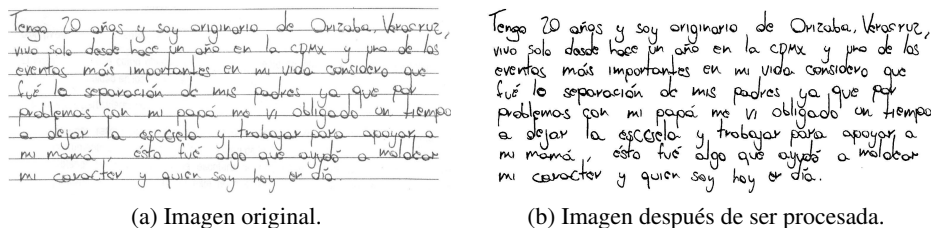 Tengo 20 años y soy originario de Orizaba, Veracruz,
vivo solo desde hace un año en la CDMX y uno de los
eventos más importantes en mi vida considero que
fué la separación de mis padres ya que por
problemas con mi papá me vi obligado un tiempo
a dejar la escuela y trabajar para apoyar a
mi mamá, esto fué algo que ayudó a moldear
mi caracter y quien soy hoy en día.
(a) Imagen original.
Tengo 20 años y soy originario de Orizaba, Veracruz,
vivo solo desde hace un año en la CDMX y uno de los
eventos más importantes en mi vida considero que
fué la separación de mis padres ya que por
problemas con mi papá me vi obligado un tiempo
a dejar la escuela y trabajar para apoyar a
mi mamá, esto fué algo que ayudó a moldear
mi caracter y quien soy hoy en día.
(b) Imagen después de ser procesada.